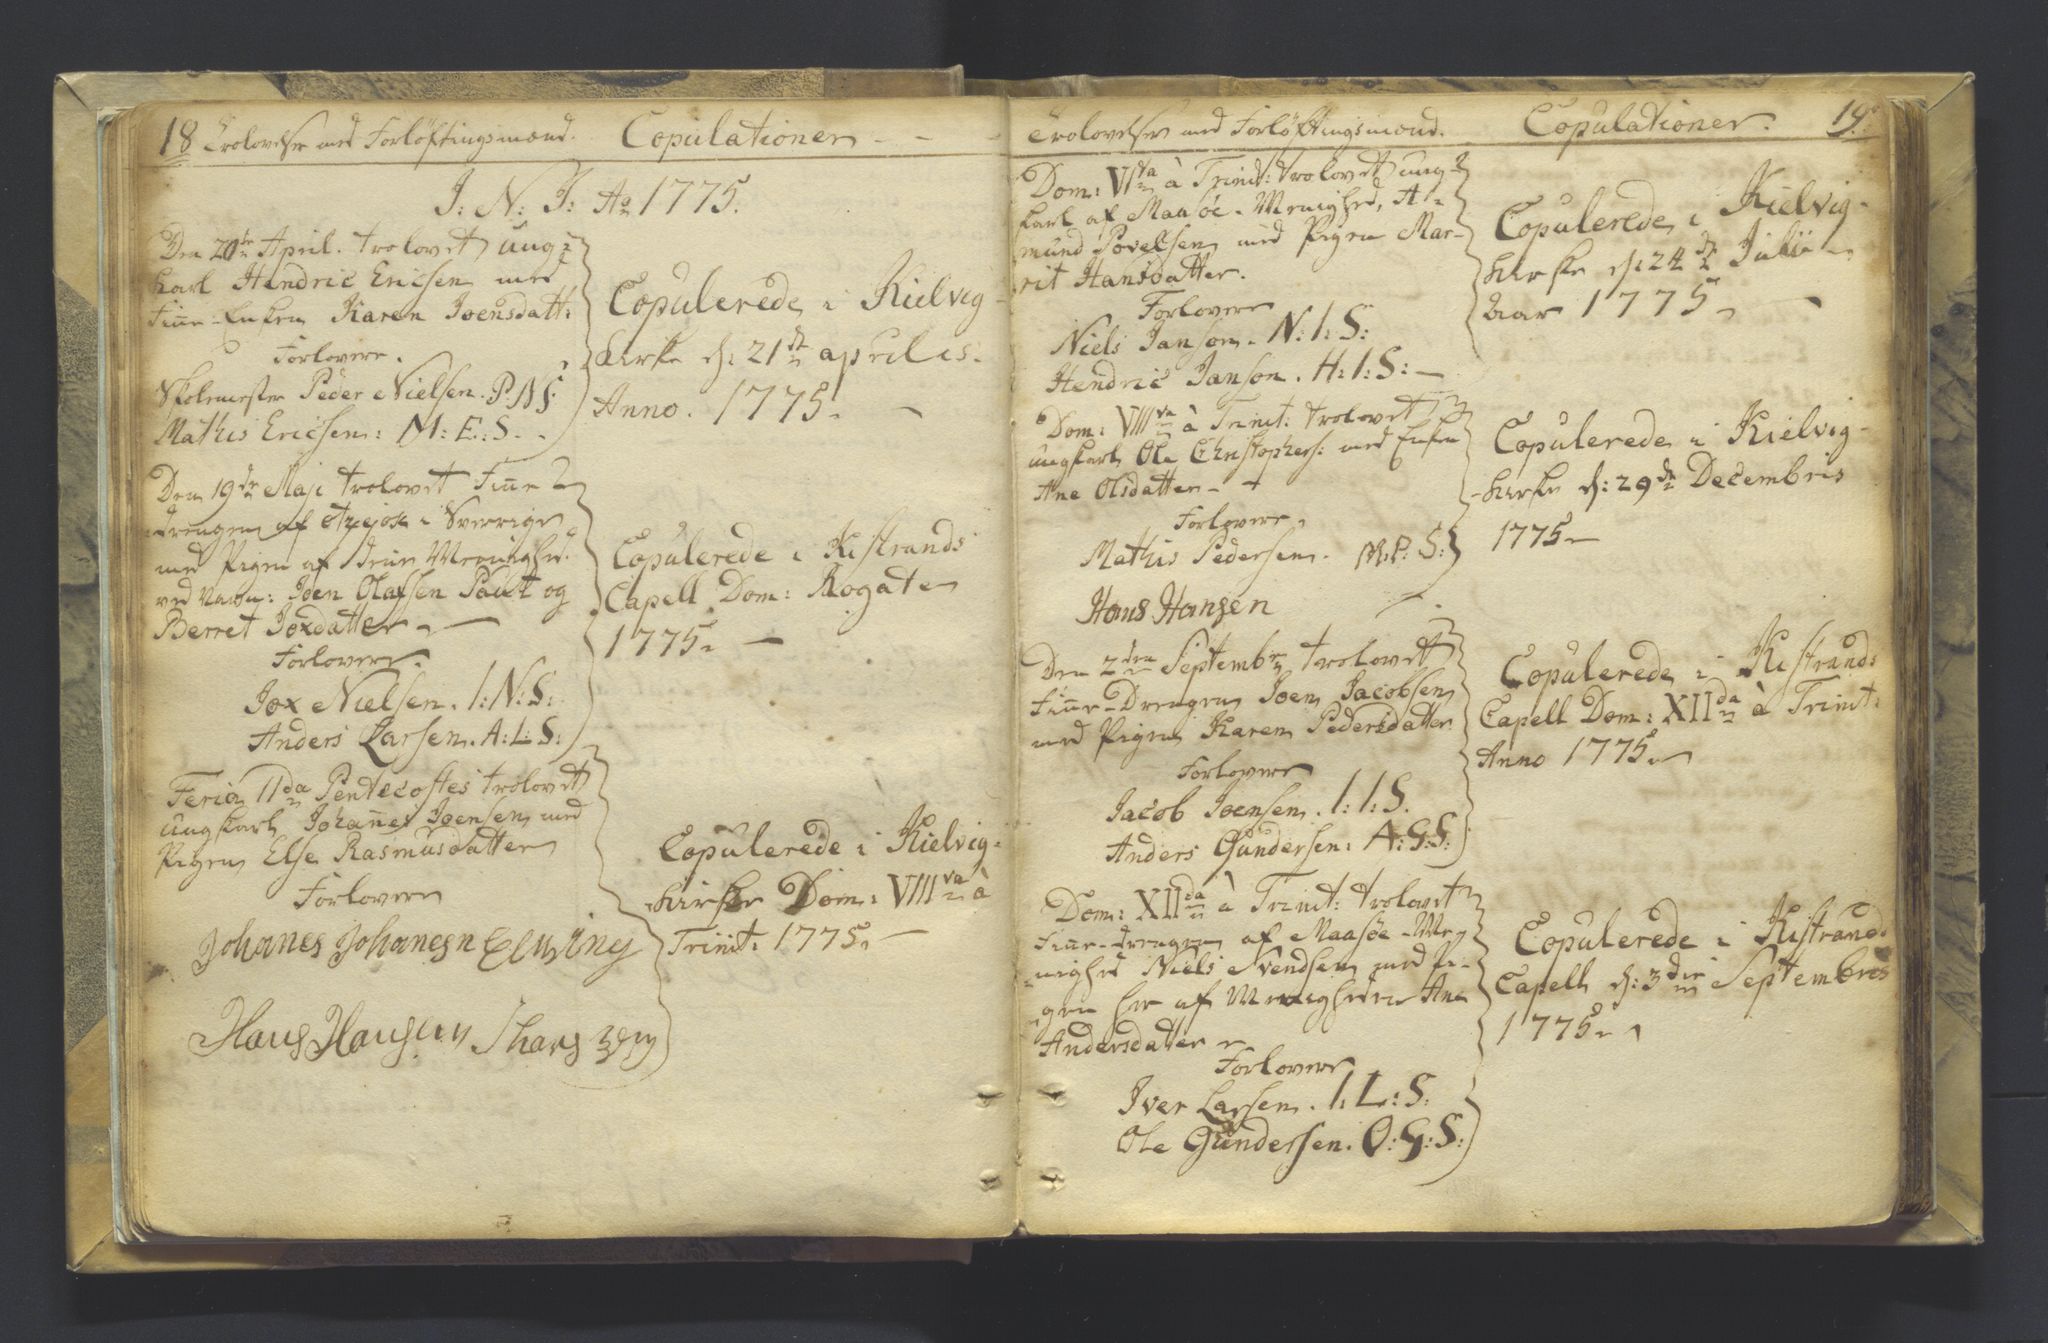 18 Trolovelser med Forløftingsmænd. Copulationer
J: N: J: Ao 1775.
Den 20de April. trolovet ung-
karl Hendric Ericsen med
Finne-Enken Karen Joensdatt:
Forlovere.
Skolemester Peder Nielsen. P.N.S.
Mathis Ericsen: M: E: S.
Copulerede i Kielvig-
kirke d: 21de aprilis.
Anno. 1775.
Den 19de Maji trolovet Finne-
drengen af i Sverrige
med Pigen af denne Menighed
ved Navn: Joen Olafsen Pault og
Berret Joxdatter.
Forlovere.
Jox Nielsen. I: N: S:
Anders Larsen. A: L: S:
Copulerede i Kistrands
Capell Dom: Rogate
1775.
Feria IIda Pentecostes trolovet
ungkarl Johannes Joensen med
Pigen Else Rasmusdatter
Forlovere
Johanes Johanesn
Hans Hansen
Copulerede i Kielvig-
kirke Dom: VIIIva à
Trinit: 1775.
Trolovelser med Forløftingsmænd. Copulationer. 19.
Dom: VIta à Trinit: trolovet ung-
karl af Maasöe-Menighed, A-
mund Povelsen med Pigen Mar-
rit Hansdatter.
Forlovere
Niels Janson. N: I: S:
Hendric Janson. H: I: S:
Copulerede i Kielvig-
kirke d: 24de Julii
Aar 1775
Dom: VIIIva à Trinit: trolovet
ungkarl Ole Christophers: med Enken
Ane Olsdatter
Forlovere.
Mathis Pedersen. M: P: S:
Hans Hansen
Copulerede i Kielvig-
kirke d: 29de Decembris
1775
Den 2den Septembr trolovet
Finne-Drengen Joen Jacobsen
med Pigen Karen Pedersdatter
Forlovere
Jacob Joensen. I: I: S.
Anders Gundersen: A: G: S:
Copulerede i Kistrands
Capell Dom: XIIda à Trinit:
Anno 1775.
Dom: XIIda à Trinit: trolovet
Finne-drengen af Maasöe-Me-
nighed Niels Svendsen med Pi-
gen her af Menigheden Ane
Andersdatter
Forlovere
Iver Larsen. I: L: S:
Ole Gunderssen. O: G: S:
Copulerede i Kistrands
Capell d: 3die Septembris
1775.